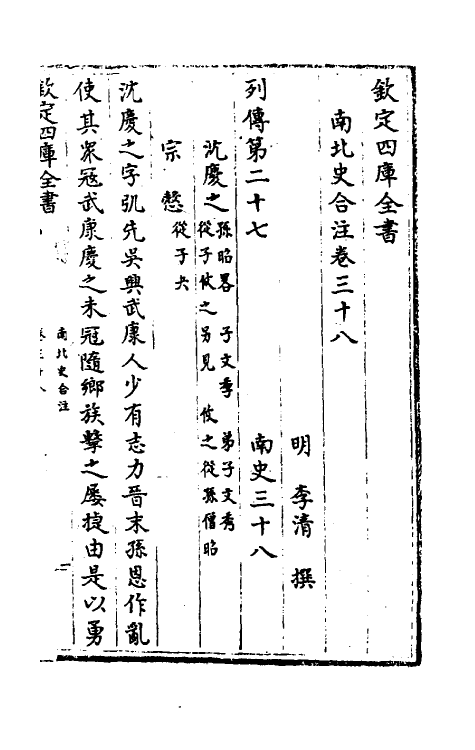 欽定四庫全書
南北史合注卷三十八
明 李清 撰
列傳第二十七
南史三十八
沈慶之 孫昭畧 子文季 弟子文秀
從子攸之另見 攸之從孫僧昭
宗慤 從子夬
沈慶之字弘先吳興武康人少有志力晉末孫恩作亂
使其衆冦武康慶之未冠隨鄉族擊之屢捷由是以勇
欽定四庫全書
南北史合注
卷三十八